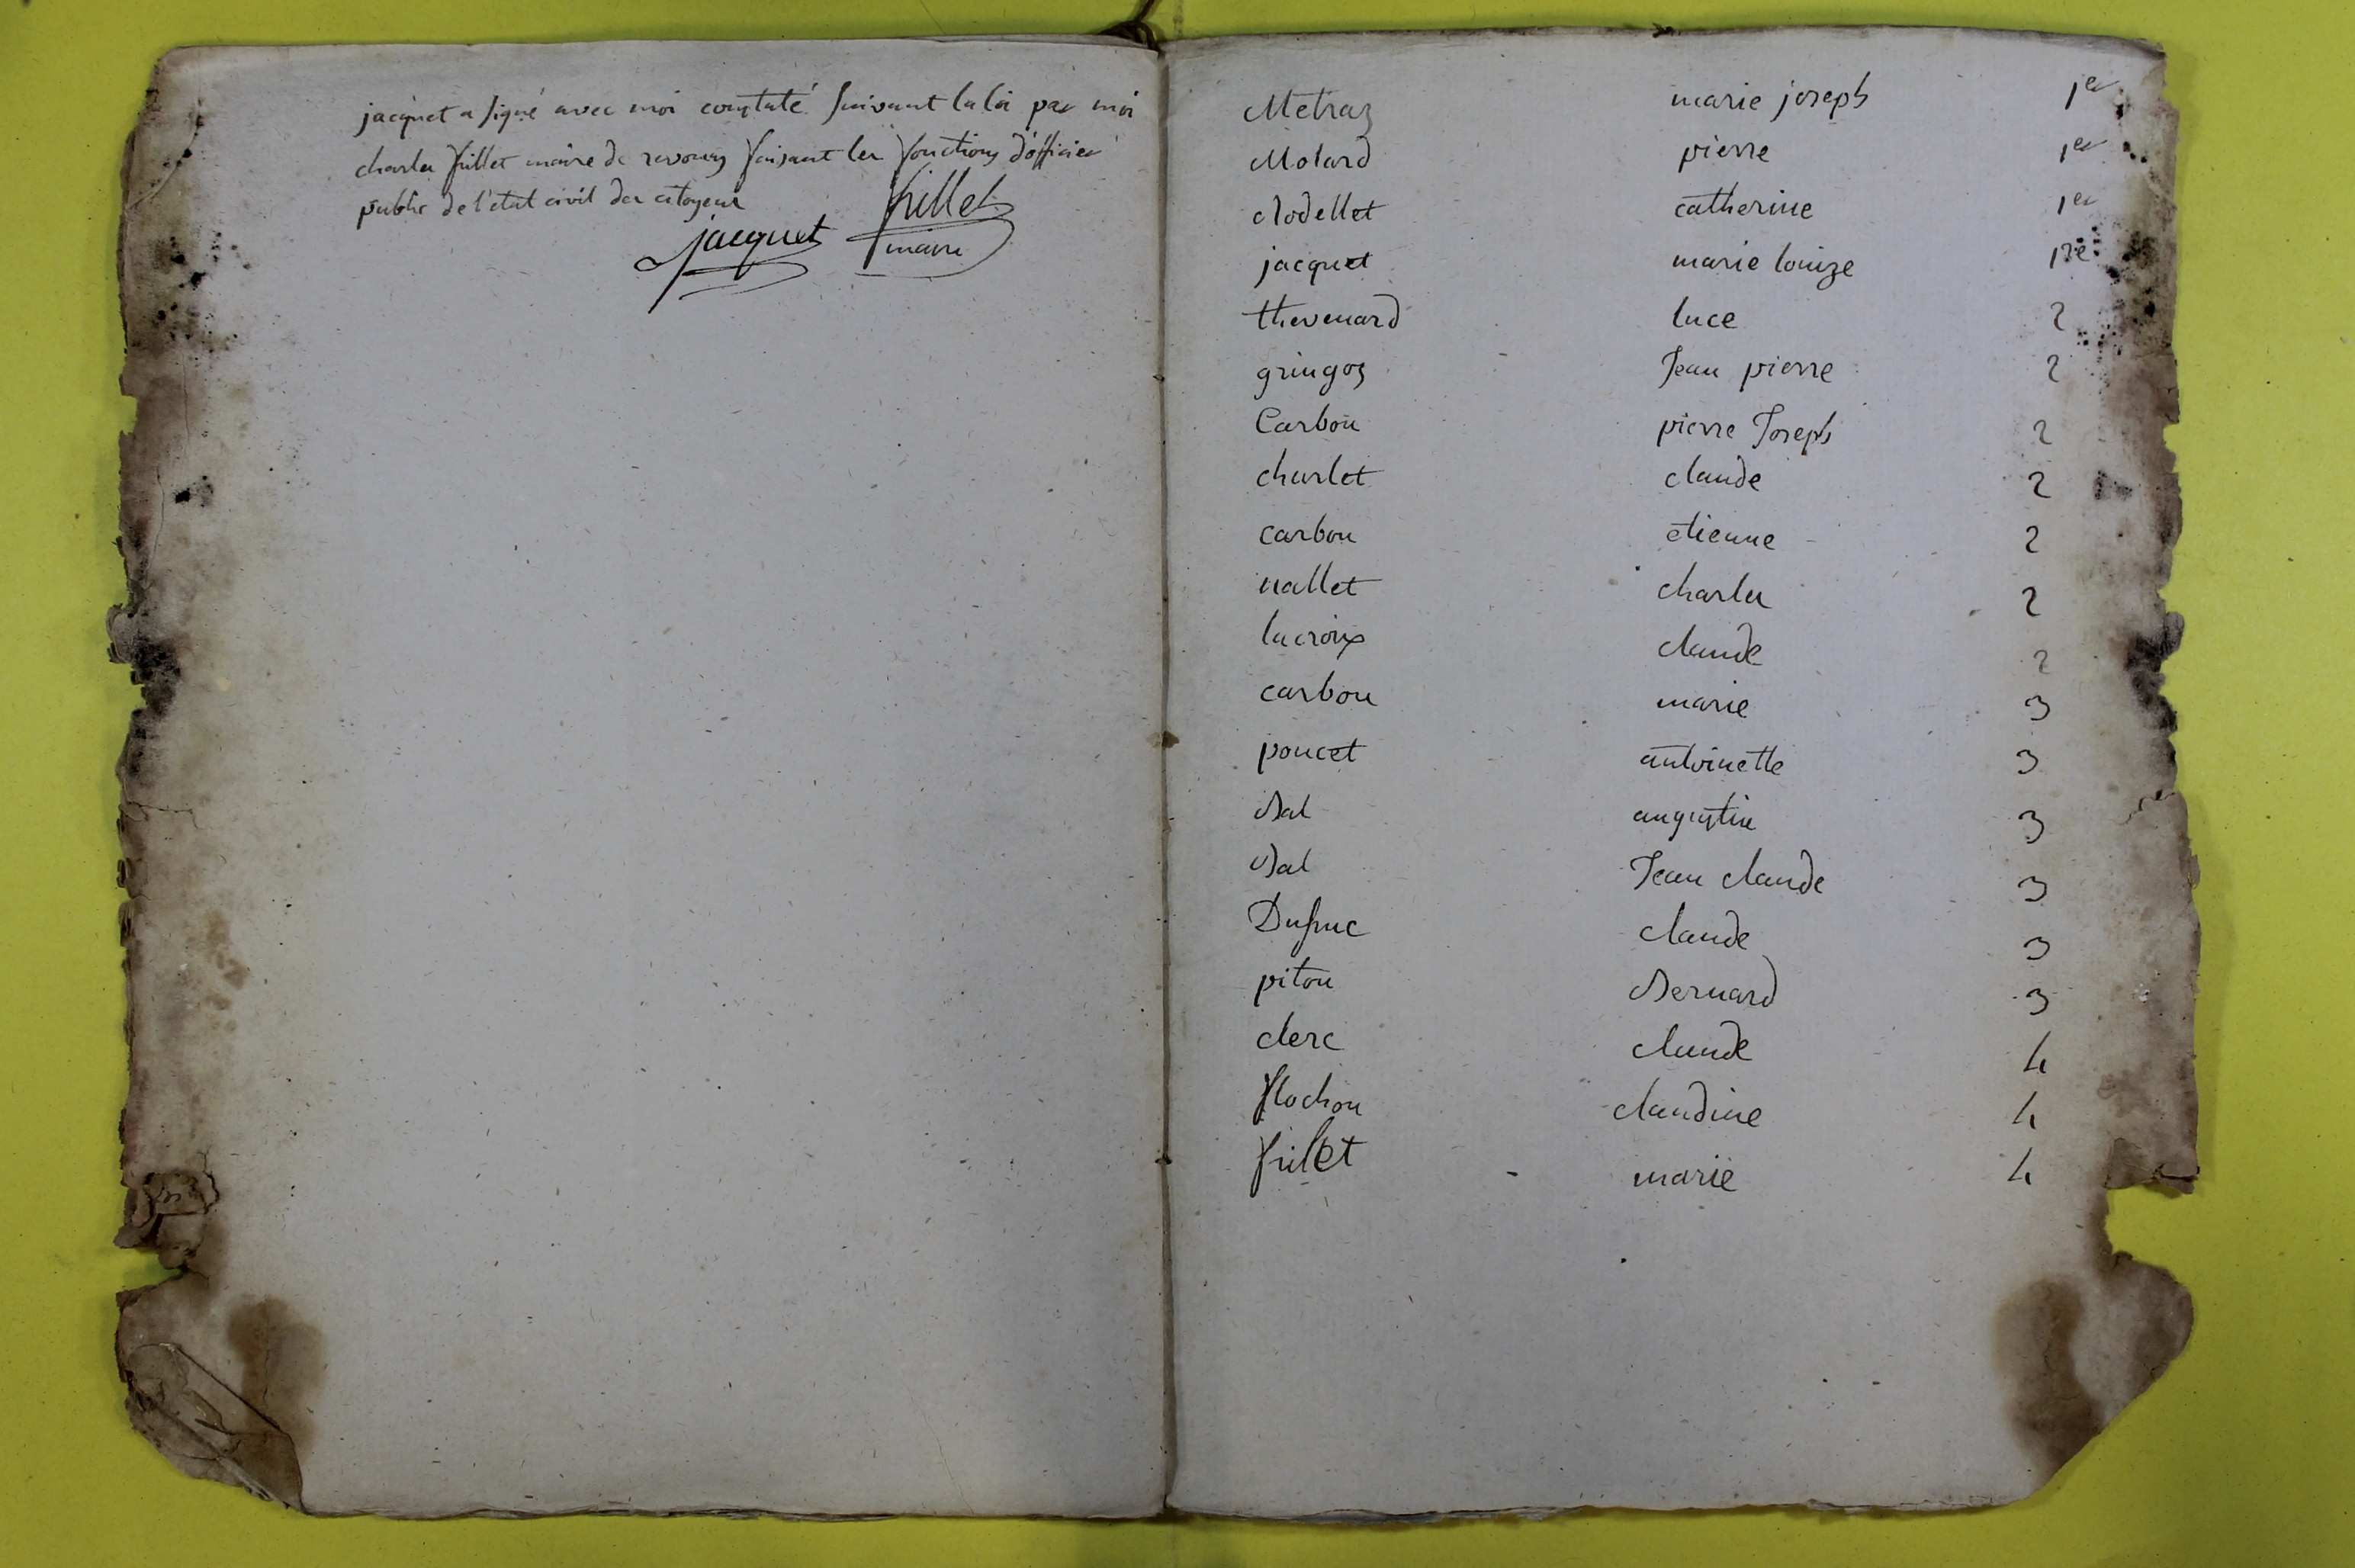 jacquet a signé avec moi constaté suivant la loi par moi
charles frillet maire de revonas faisant les fonctions d'officier
public de l'état civil des citoyens
jacquet frillet
maire
Metraz marie joseph 1er
Molard pierre 1er
Rodellet catherine 1er
jacquet marie louize 1re
thevenard luce 2
gringoz Jean pierre 2
Carbon pierre Joseph 2
charlet claude 2
carbon etienne 2
nallet charles 2
lacroix claude 2
carbon marie 3
poncet antoinette 3
Bal augustin 3
Bal Jean claude 3
Dufour claude 3
piton Bernard 3
clerc claude 4
flochon claudine 4
frilet marie 4